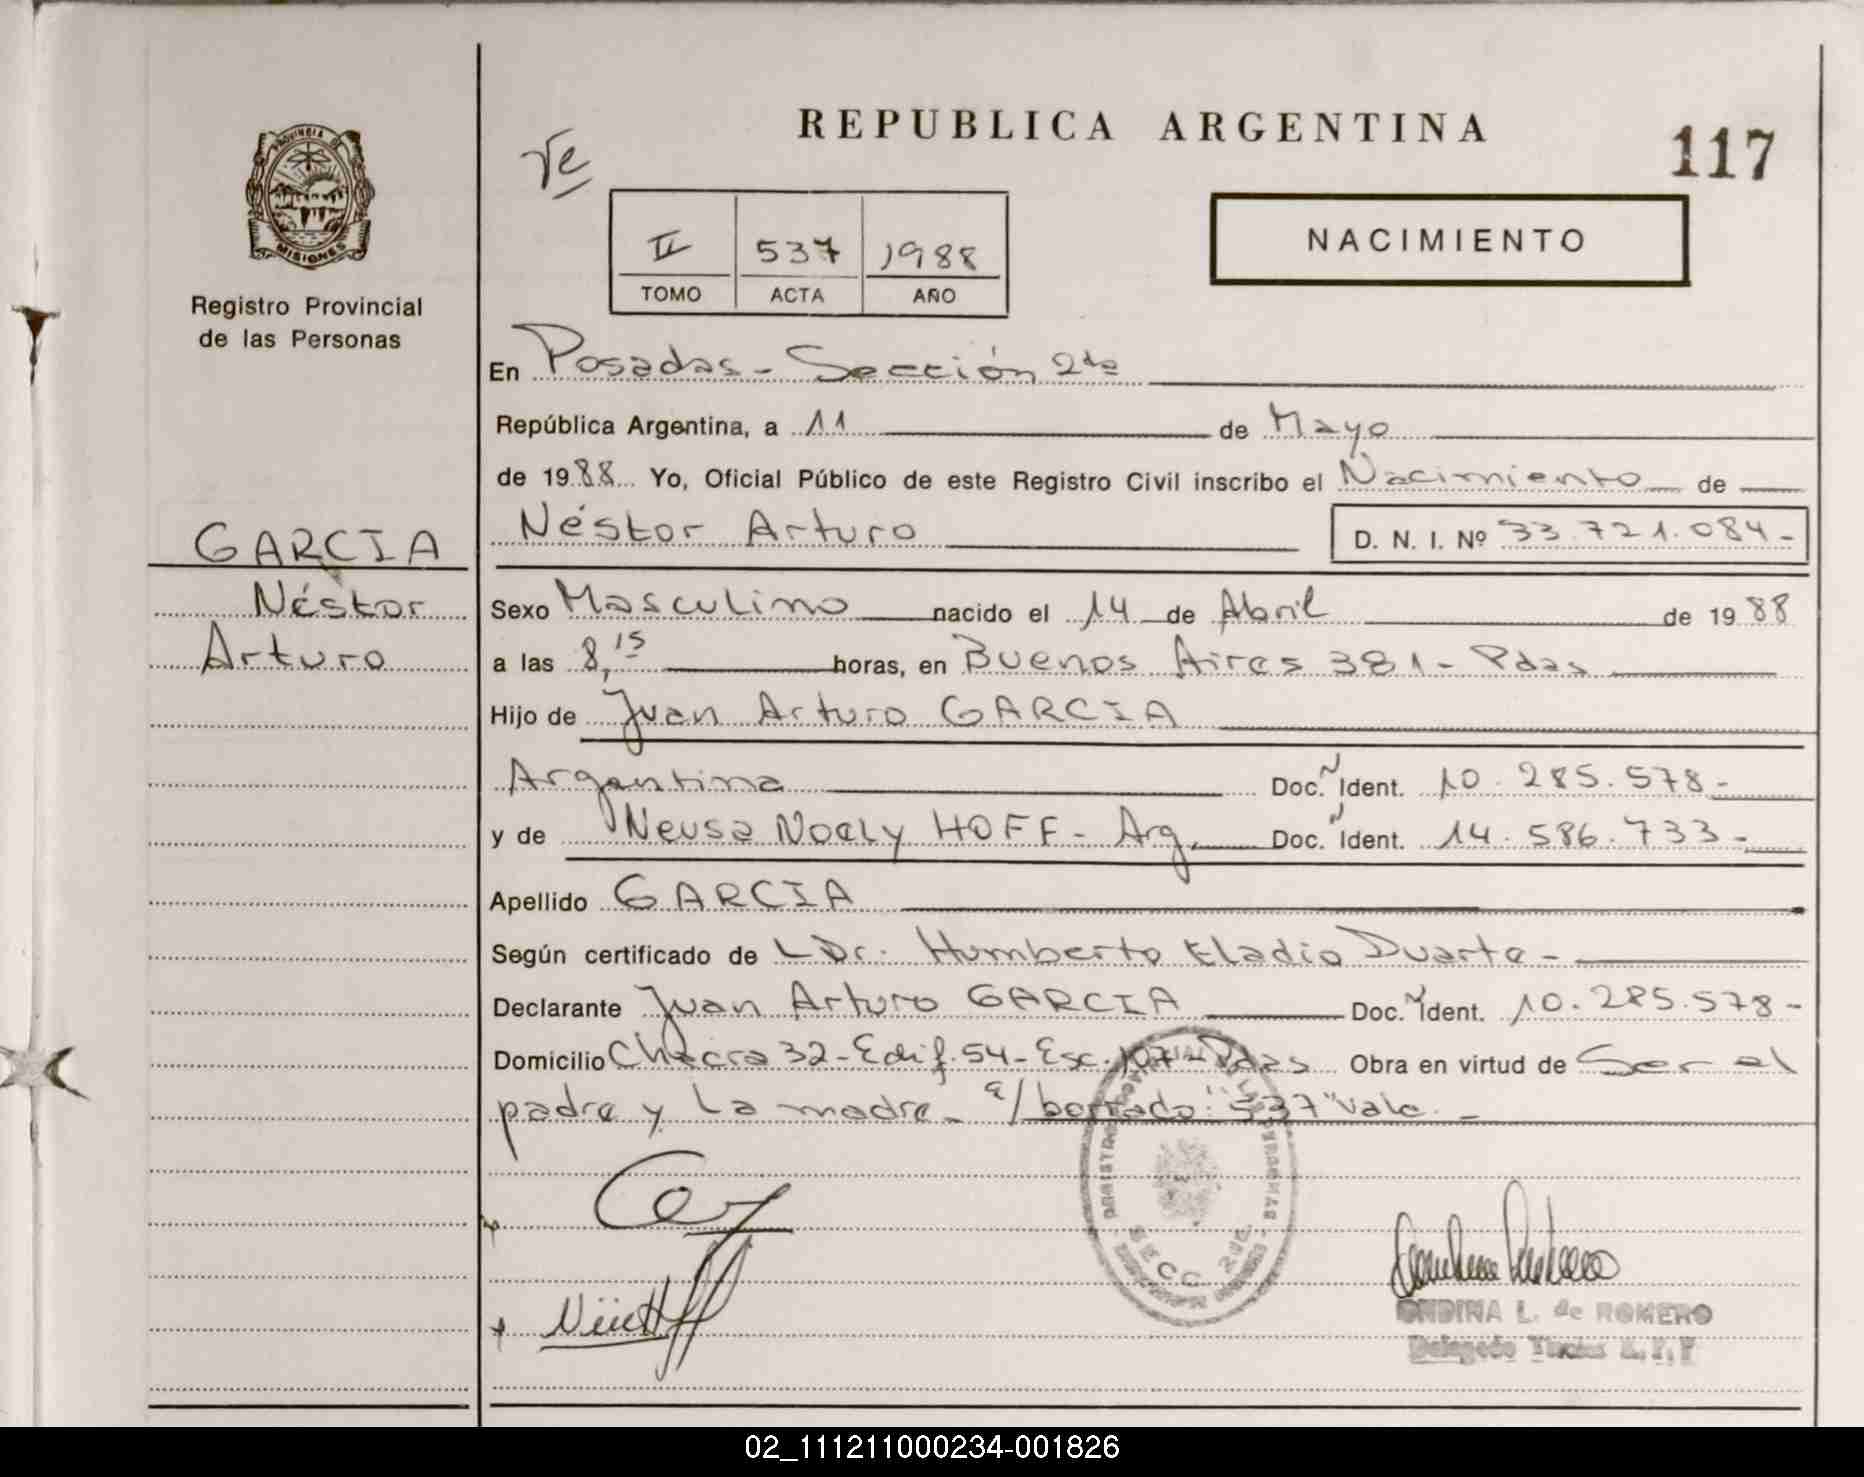 REPUBLICA ARGENTINA
117
PROVINCIA DE
MISIONES
Registro Provincial
de las Personas
II 537 1988
TOMO ACTA AÑO
NACIMIENTO
En Posadas - Sección 2da
República Argentina, a 11 de Mayo
de 1988 Yo, Oficial Público de este Registro Civil inscribo el Nacimiento de
Néstor Arturo D. N. I. Nº 33.721.084-
GARCIA
Néstor
Arturo
Sexo Masculino nacido el 14 de Abril de 1988
a las 8,15 horas, en Buenos Aires 381 - Pdas
Hijo de Juan Arturo GARCIA
Argentina Doc. Ident. 10.285.578-
y de Neusa Noely HOFF - Arg. Doc. Ident. 14.586.733-
Apellido GARCIA
Según certificado de L Dr. Humberto Eladio Duarte -
Declarante Juan Arturo GARCIA Doc. Ident. 10.285.578-
Domicilio Chacra 32 - Edif. 54 - Esc. 107 - Pdas Obra en virtud de Ser el
padre y La madre - e/ borrado: "537" Vale. -
SECC 2da
ONDINA L. de ROMERO
02_111211000234-001826